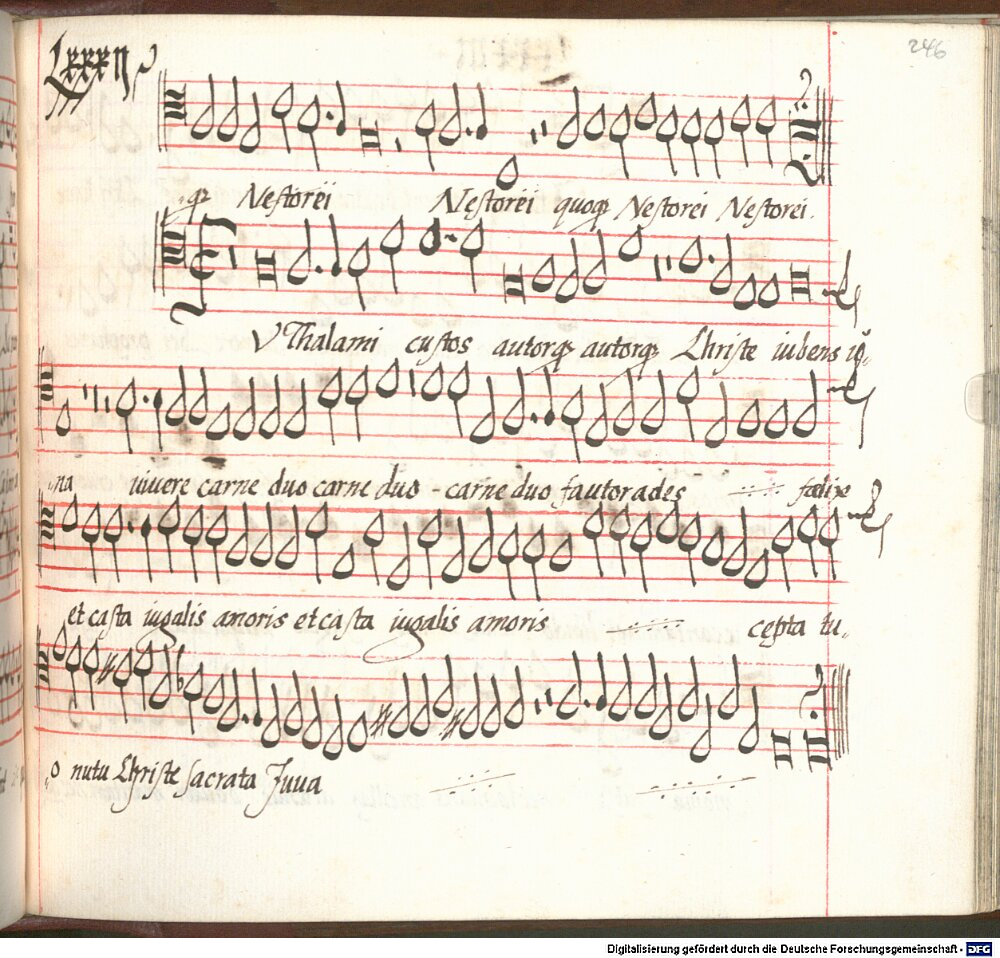 246
Lxxxij
q3 Nestorei Nestorei quoq3 Nestorei Nestorei.
TV Thalami custos autorq3 autorq3 Christe iubens
na viuere carne duo carne duo - carne duo fautor ades
et casta iugalis amoris et casta iugalis amoris cepta tu..
o nutu Christe sacrata Juua
Digitalisierung gefördert durch die Deutsche Forschungsgemeinschaft - DFG